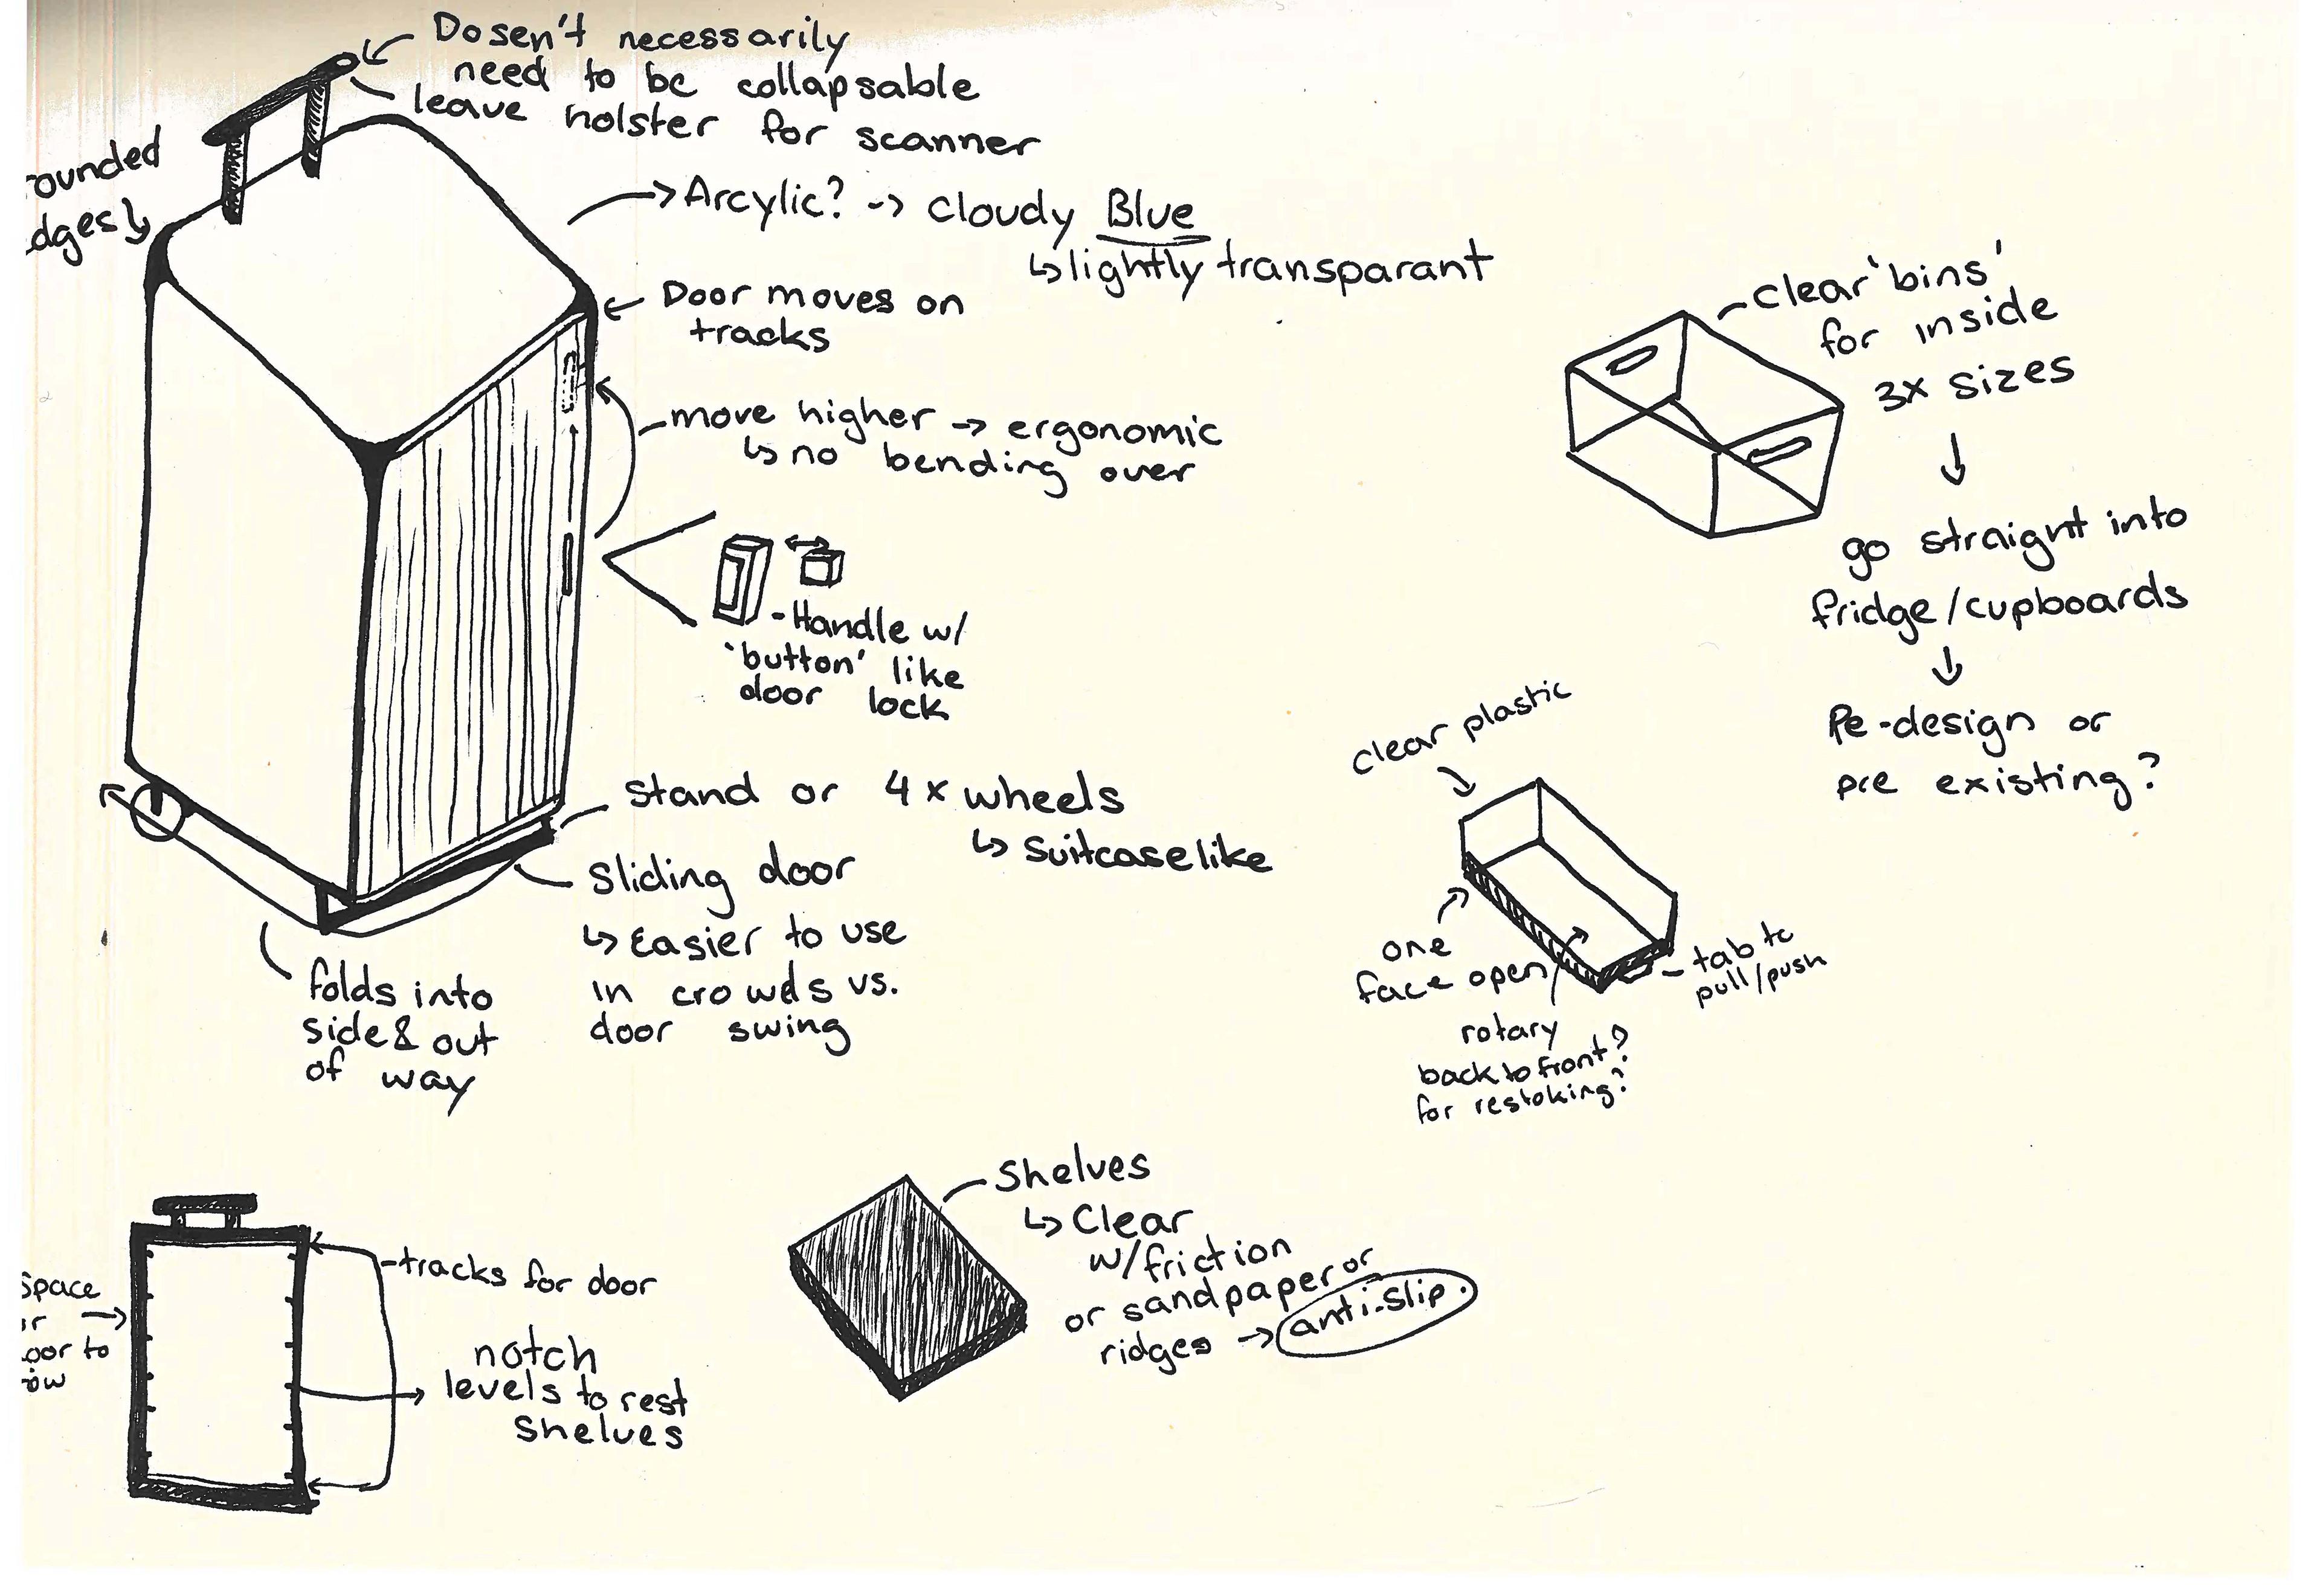 Dosen't necessarily
need to be collapsable
leave holster for scanner
rounded
edges
Arcylic? -> cloudy Blue
↳ lightly transparant
Door moves on
tracks
move higher -> ergonomic
↳ no bending over
-Handle w/
'button' like
door lock
Stand or 4x wheels
↳ suitcaselike
Sliding door
↳ Easier to use
in crowds vs.
door swing
folds into
side & out
of way
clear 'bins'
for inside
3x sizes
↓
go straight into
fridge/cupboards
↓
Re-design or
pre existing?
clear plastic
one
face open
tab to
pull/push
rotary
back to front?
for restoking?
Space
door to
-tracks for door
notch
levels to rest
Shelves
Shelves
↳ Clear
w/friction
or sandpaper or
ridges -> anti-slip.